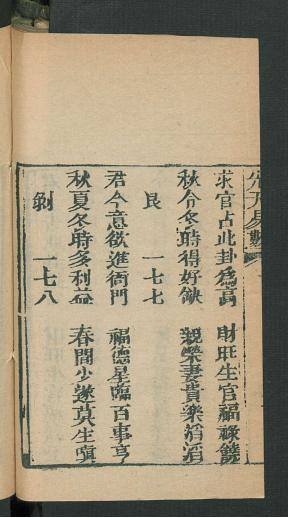 先天易數
求官占此卦爲高 財旺生官福祿饒
秋令冬時得好缺 親榮妻貴樂滔滔
艮 一七七
君今意欲進衙門 福德星臨百事亨
秋夏冬時多利益 春間少遂莫生嗔
剝 一七八